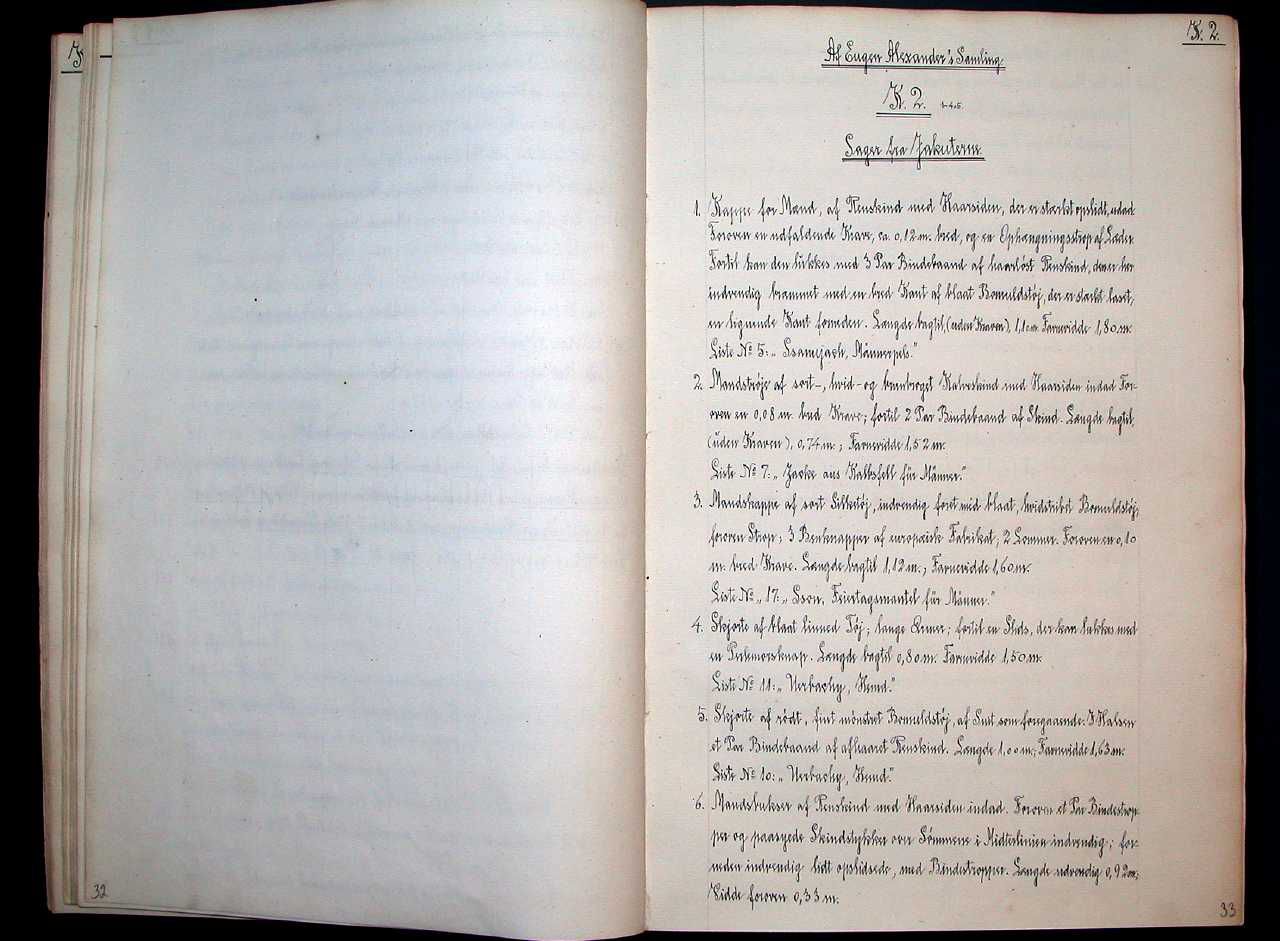 K. 2.
Af Eugen Alexander's Samling.
K. 2.
Sager fra Jakuterne.
1. Kappe for Mand, af Renskind med Haarsiden, der er stærkt opslidt, udad.
Foroven en udfaldende Krave, ca. 0,12 m. bred, og en Ophængningsstrop af Læder.
Fortil kan den lukkes med 3 Par Bindebaand af haarløst Renskind, den er her
indvendig brammet med en bred Kant af blaat Bomuldstøj, der er stærkt laset;
en lignende Kant forneden. Længde bagtil, (uden Kraven), 1,10 m. Farvevidde 1,80 m.
Liste No 5: „ Ssamyjach, Männerpels."
2. Mandstrøje af sort-, hvid- og brunbroget Kalveskind med Haarsiden indad. For-
oven en 0,08 m. bred Krave; fortil 2 Par Bindebaand af Skind. Længde bagtil,
(uden Kraven), 0,74 m.; Farvevidde 1,52 m.
Liste No 7: „ Jacke aus Kalbsfell für Männer."
3. Mandskappe af sort Silketøj, indvendig foret med blaat, hvidstribet Bomuldstøj;
foroven Strop; 3 Benknapper af europæisk Fabrikat; 2 Lommer. Foroven en 0,10
m. bred Krave. Længde bagtil 1,12 m.; Farvevidde 1,60 m.
Liste No „ 17: „ Sson, Feiertagsmantel für Männer."
4. Skjorte af blaat linned Tøj; lange Ærmer; fortil en Slids, der kan lukkes med
en Perlemorsknap. Længde bagtil 0,80 m. Farvevidde 1,50 m.
Liste No 11: „ Urbachy, Hemd."
5. Skjorte af rødt, fint mønstret Bomuldstøj, af Snit som foregaaende. I Halsen
et Par Bindebaand af afhaaret Renskind. Længde 1,00 m.; Farvevidde 1,63 m.
Liste No 10: „ Urbachy, Hemd."
6. Mandsbukser af Renskind med Haarsiden indad. Foroven et Par Bindestrop-
per og paasyede Skindstykker over Sømmene i Midterlinien indvendig; for-
neden indvendig lidt opslidsede, med Bindestropper. Længde udvendig 0,92 m.;
Vidde foroven 0,33 m.
32
33